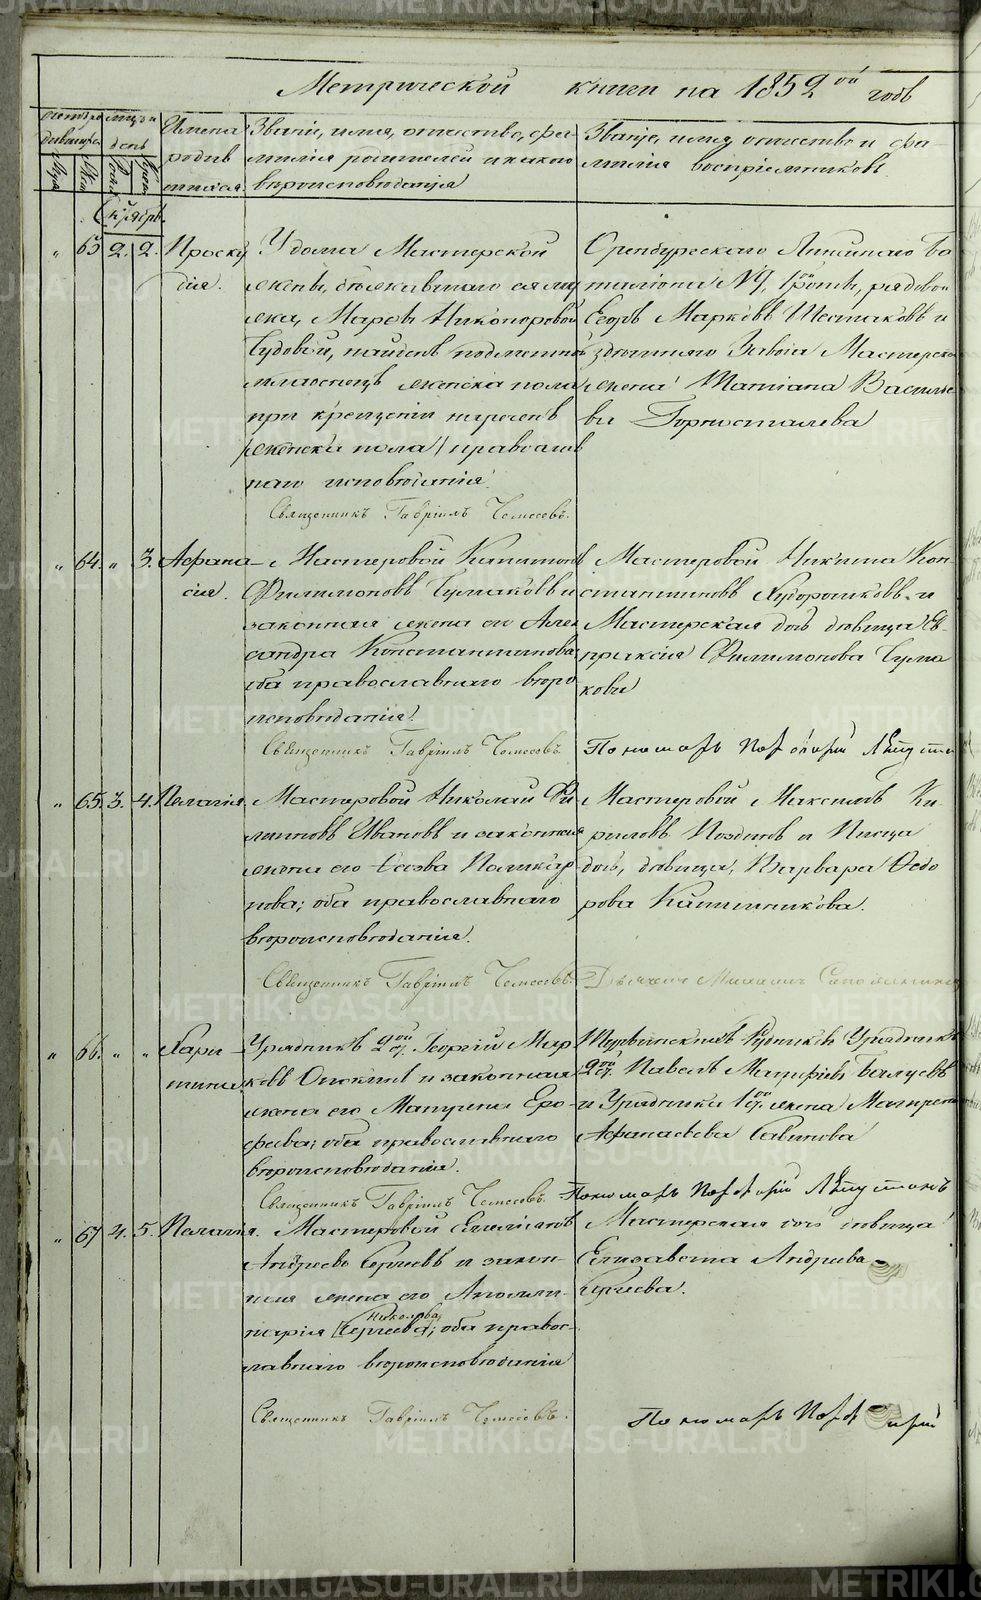 METRIKI.GASO-URAL.RU
Метрической книги на 1852ой годъ
Имена родившихся.
Званіе, имя, отчество, фамилія родителей и какого вѣроисповѣданія
Званіе, имя, отчество и фамилія воспріемниковъ.
Октябрь
63 2. 2. Проскудія.
У дома Мастерской
жены, бѣжавшаго
Марѳы Никифоровой
Чудовой, найденъ подметной
младенецъ женска пола
при крещеніи нареченъ
/женска пола/ православнаго исповѣданія.
Священникъ Гавріилъ Чемесовъ.
Оренбургскаго Линейнаго баталіона
роты, рядовой
Егоръ Марковъ Шестаковъ и
здѣшняго Завода Мастерска
жена Татіана Васильева
Горносталева
64. " 3. Афанасія.
Мастеровой Капитонъ
Филимоновъ Чумаковъ и
законная жена его Александра
Константинова
оба православнаго вѣроисповѣданія.
Священникъ Гавріилъ Чемесовъ
Мастеровой Никита Константиновъ
Худорошковъ и
Мастерская дочь дѣвица Евпраксія
Филимонова Чумакова
Пономарь Порфирій
65. 3. 4. Пелагія.
Мастеровой Николай Филиповъ
Ивановъ и законная
жена его Поликарпова;
оба православнаго
вѣроисповѣданія.
Священникъ Гавріилъ Чемесовъ.
Мастеровой Максимъ Кириловъ
Поздинъ и Писца
дочь, дѣвица, Варвара Ѳедорова
Калинникова.
66. " " Харитина
Урядникъ 2й ст. Георгій Марковъ
и законная
жена его Матрена Ерофѣева;
оба православнаго
вѣроисповѣданія.
Священникъ Гавріилъ Чемесовъ.
Урядникъ
2й ст. Павелъ Балуевъ
и Урядника 1й ст. жена Матрена
Афанасьева Савинова
Пономарь Порфирій
67 4. 5. Пелагія.
Мастеровой Емельянъ
Андреевъ Сергѣевъ и законная
жена его Аполлинарія
Николаева
[Сергѣева]; оба православнаго
вѣроисповѣданія
Священникъ Гавріилъ Чемесовъ.
Мастерская дочь дѣвица
Елизавета Андреева
Сергѣева.
Пономарь Порфирій